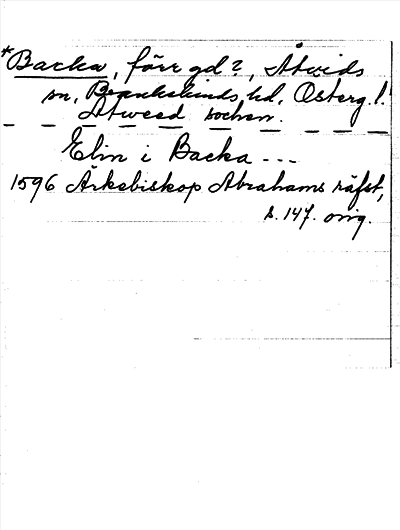 *Backa, förr gd?, Åtvids
sn, Bankekinds hd, Österg. l.
Åtweed sochen.
Elin i Backa ---
1596 Ärkebiskop Abrahams räfst,
s. 147. orig.